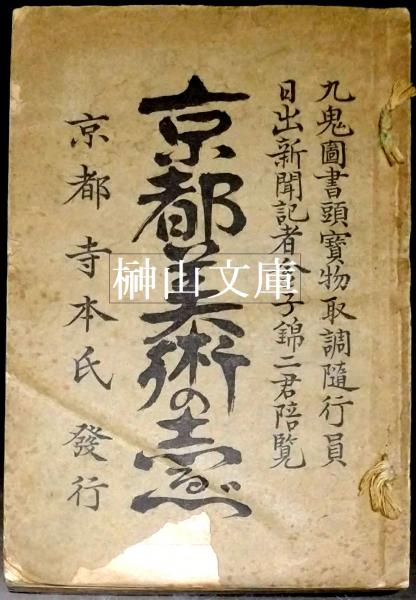 九鬼圖書頭寶物取調隨行員
日出新聞記者金子錦二君陪覧
京都美術のしるべ
京都 寺本氏 發行
榊山文庫